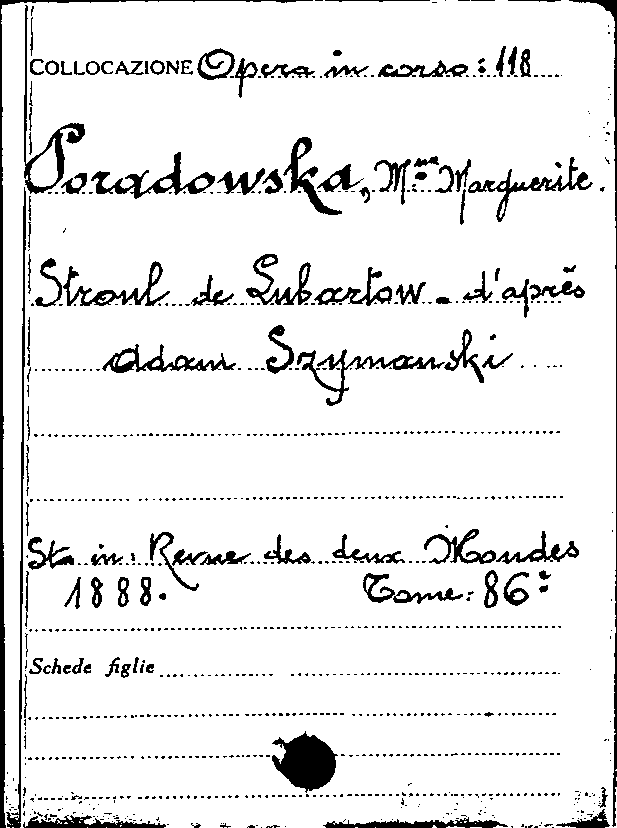 COLLOCAZIONE Opera in corso: 118
Poradowska, Mme Marguerite.
Stroul de Lubartow - d'après
Adam Szymanski
Sta in: Revue des deux Mondes
1888. Tome: 86e
Schede figlie